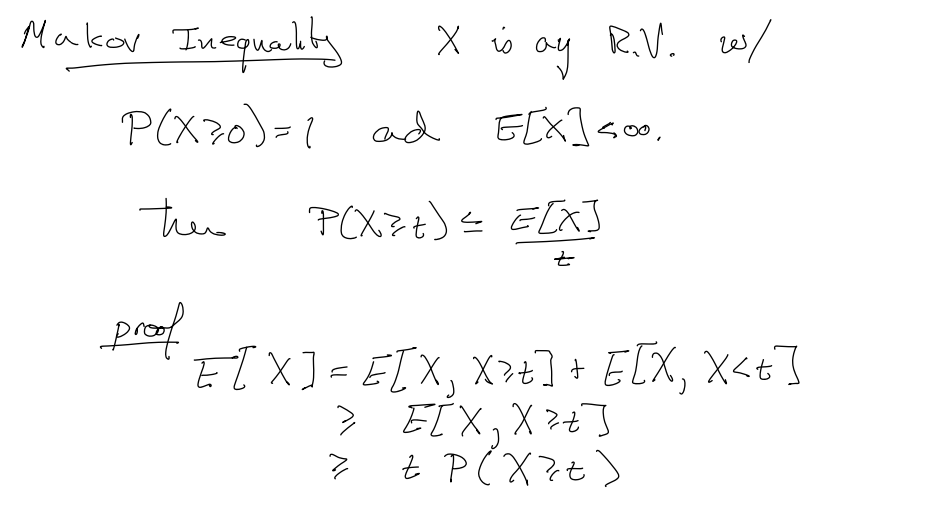 Makov Inequality X is ay R.V. w/
P(X≥0)=1 ad E[X]<∞.
then P(X≥t) ≤ E[X]/t
proof
E[X] = E[X, X≥t] + E[X, X<t]
≥ E[X, X≥t]
≥ t P(X≥t)